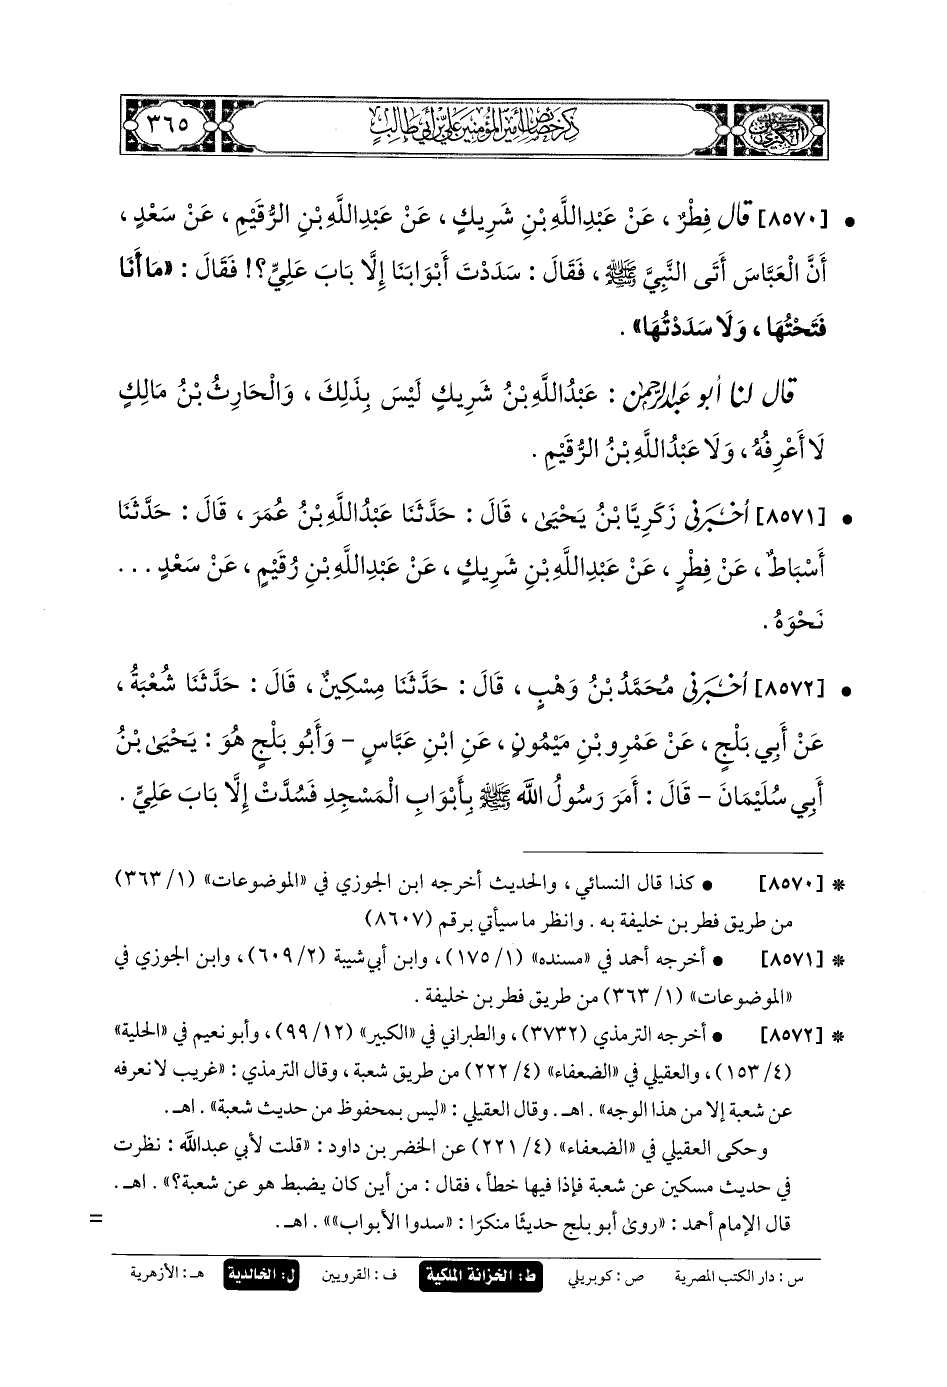 ٣٦٥ ذكر خصائص أمير المؤمنين علي بن أبي طالب
• [٨٥٧٠] قال فِطْرٌ، عَنْ عَبْدِاللَّهِ بْنِ شَرِيكٍ، عَنْ عَبْدِاللَّهِ بْنِ الرُّقَيْمِ، عَنْ سَعْدٍ،
أَنَّ الْعَبَّاسَ أَتَى النَّبِيَّ ﷺ، فَقَالَ: سَدَدْتَ أَبْوَابَنَا إِلَّا بَابَ عَلِيٍّ؟! فَقَالَ: «مَا أَنَا
فَتَحْتُهَا، وَلَا سَدَدْتُهَا».
قال لنا أبو عبدالرحمن: عَبْدُاللَّهِ بْنُ شَرِيكٍ لَيْسَ بِذَلِكَ، وَالْحَارِثُ بْنُ مَالِكٍ
لَا أَعْرِفُهُ، وَلَا عَبْدُاللَّهِ بْنُ الرُّقَيْمِ.
• [٨٥٧١] أخبرني زَكَرِيَّا بْنُ يَحْيَىٰ، قَالَ: حَدَّثَنَا عَبْدُاللَّهِ بْنُ عُمَرَ، قَالَ: حَدَّثَنَا
أَسْبَاطٌ، عَنْ فِطْرٍ، عَنْ عَبْدِاللَّهِ بْنِ شَرِيكٍ، عَنْ عَبْدِاللَّهِ بْنِ رُقَيْمٍ، عَنْ سَعْدٍ ...
نَحْوَهُ.
• [٨٥٧٢] أخبرني مُحَمَّدُ بْنُ وَهْبٍ، قَالَ: حَدَّثَنَا مِسْكِينٌ، قَالَ: حَدَّثَنَا شُعْبَةُ،
عَنْ أَبِي بَلْجٍ، عَنْ عَمْرِو بْنِ مَيْمُونٍ، عَنِ ابْنِ عَبَّاسٍ - وَأَبُو بَلْجٍ هُوَ: يَحْيَىٰ بْنُ
أَبِي سُلَيْمَانَ - قَالَ: أَمَرَ رَسُولُ اللَّه ﷺ بِأَبْوَابِ الْمَسْجِدِ فَسُدَّتْ إِلَّا بَابَ عَلِيٍّ.
* [٨٥٧٠] • كذا قال النسائي، والحديث أخرجه ابن الجوزي في «الموضوعات» (١/ ٣٦٣)
من طريق فطر بن خليفة به. وانظر ما سيأتي برقم (٨٦٠٧)
* [٨٥٧١] • أخرجه أحمد في «مسنده» (١/ ١٧٥)، وابن أبي شيبة (٢/ ٦٠٩)، وابن الجوزي في
«الموضوعات» (١/ ٣٦٣) من طريق فطر بن خليفة.
* [٨٥٧٢] • أخرجه الترمذي (٣٧٣٢)، والطبراني في «الكبير» (١٢/ ٩٩)، وأبو نعيم في «الحلية»
(٤/ ١٥٣)، والعقيلي في «الضعفاء» (٤/ ٢٢٢) من طريق شعبة، وقال الترمذي: «غريب لا نعرفه
عن شعبة إلا من هذا الوجه». اهـ. وقال العقيلي: «ليس بمحفوظ من حديث شعبة». اهـ.
وحكى العقيلي في «الضعفاء» (٤/ ٢٢١) عن الخضر بن داود: «قلت لأبي عبدالله: نظرت
في حديث مسكين عن شعبة فإذا فيها خطأ، فقال: من أين كان يضبط هو عن شعبة؟». اهـ.
قال الإمام أحمد: «روىٰ أبو بلج حديثًا منكرًا: «سدوا الأبواب»». اهـ. =
س: دار الكتب المصرية ص: كوبريلي ط: الخزانة الملكية ف: القرويين ل: الخالدية هـ: الأزهرية